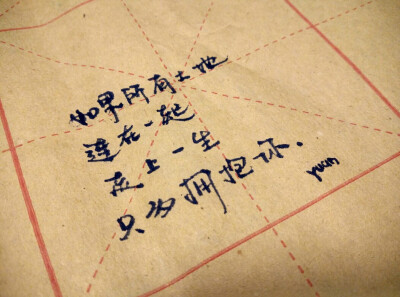 如果所有土地
连在一起
走上一生
只为拥抱你.
yuan